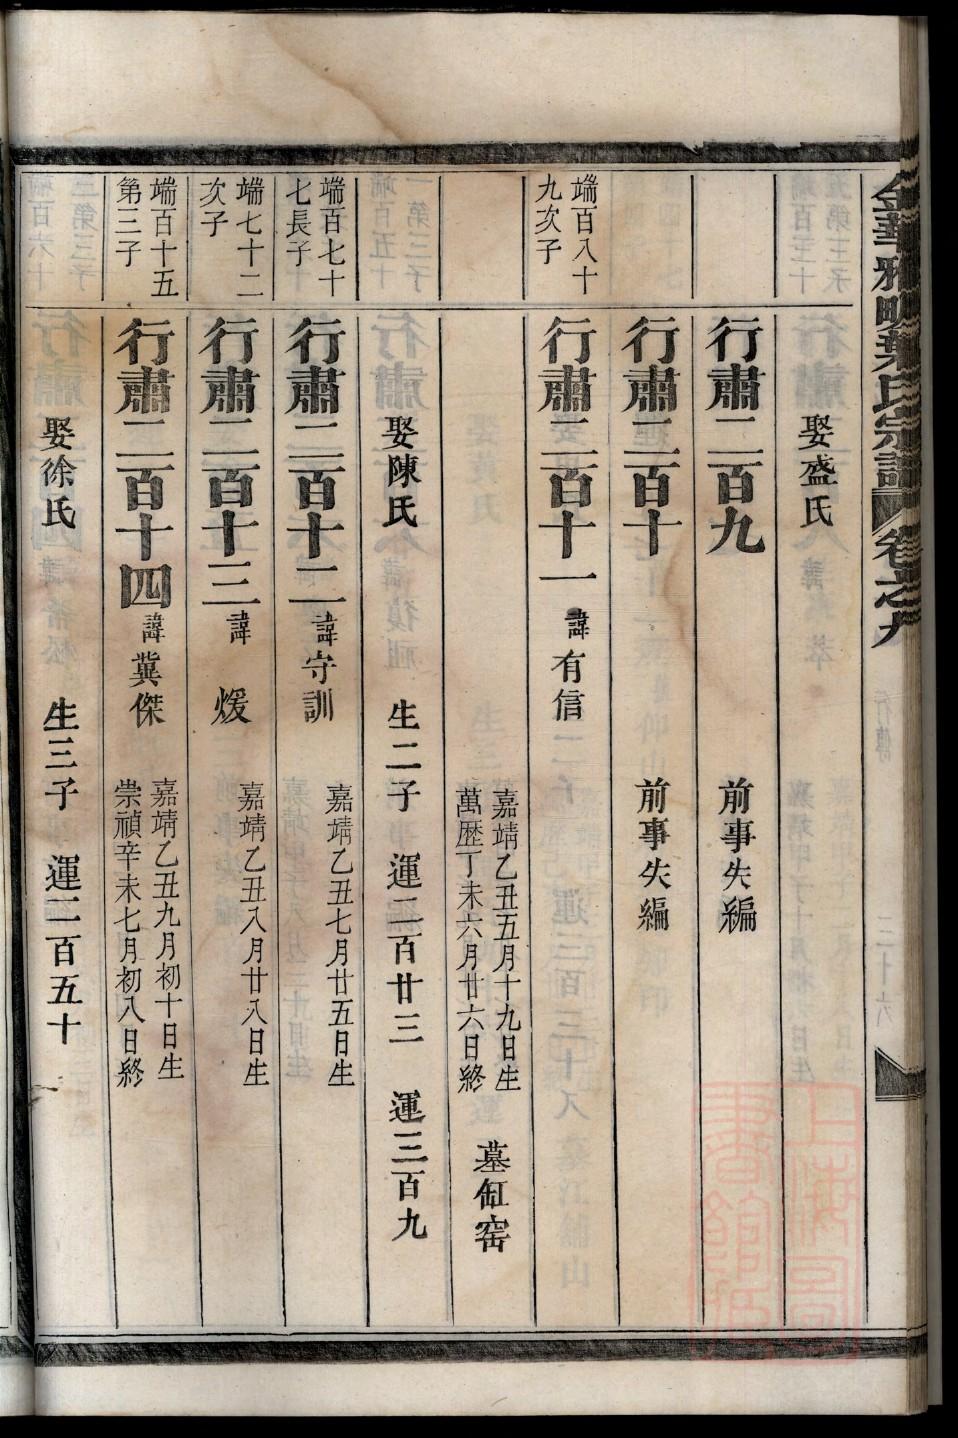 金華雅畈葉氏宗譜 卷之九 行傳 三十六
娶盛氏
行肅二百九 前事失編
行肅二百十 前事失編
端百八十
九次子
行肅二百十一 諱有信
嘉靖乙丑五月十九日生
萬歷丁未六月廿六日終
墓缸窑
娶陳氏 生二子 運二百廿三 運三百九
端百七十
七長子
行肅二百十二 諱守訓 嘉靖乙丑七月廿五日生
端七十二
次子
行肅二百十三 諱煖 嘉靖乙丑八月廿八日生
端百十五
第三子
行肅二百十四 諱冀傑
嘉靖乙丑九月初十日生
崇禎辛未七月初八日終
娶徐氏 生三子 運二百五十